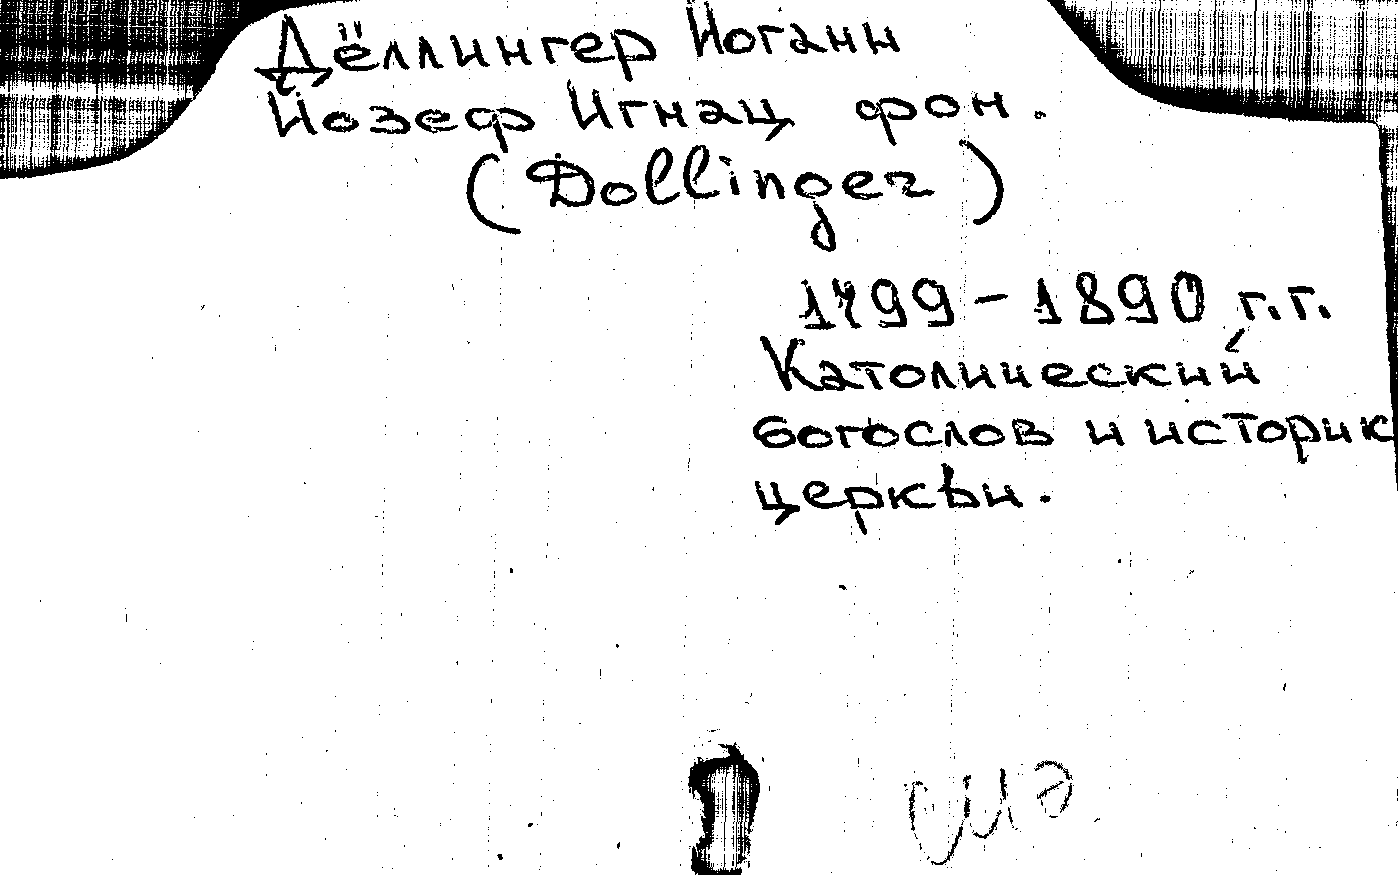 Дёллингер Иоганн
Йозеф Игнац фон.
(Dollinger)
1799-1890 г.г.
Католический
богослов и историк
церкви.